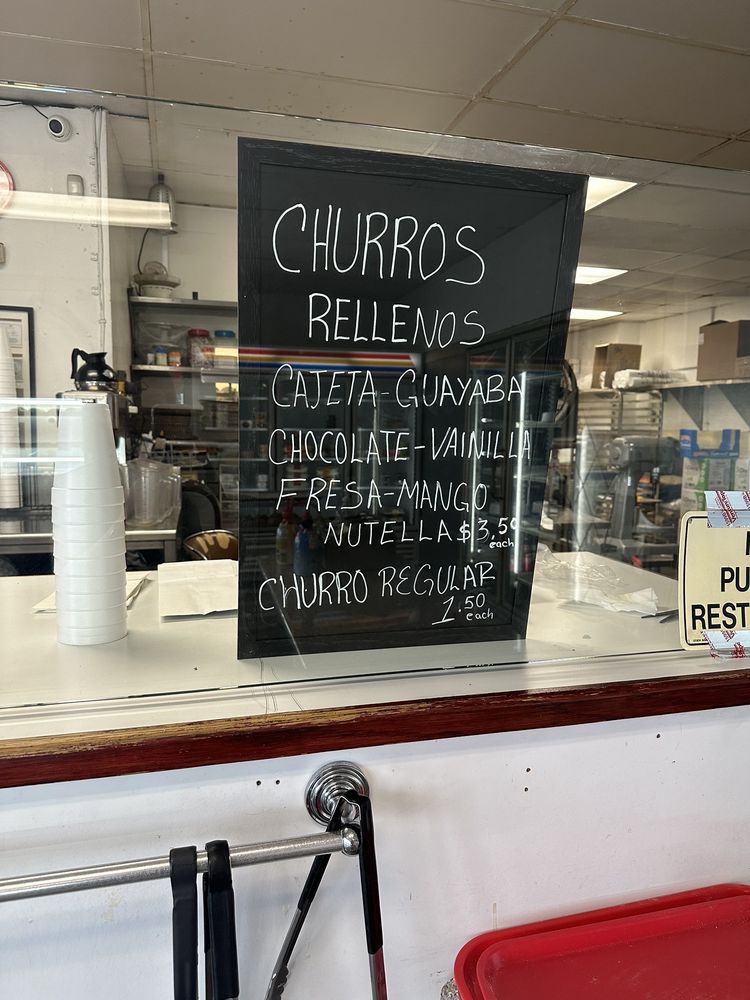 CHURROS
RELLENOS
CAJETA-GUAYABA
CHOCOLATE-VAINILLA
FRESA-MANGO
NUTELLA $3.50
each
CHURRO REGULAR
1.50
each
PU
REST